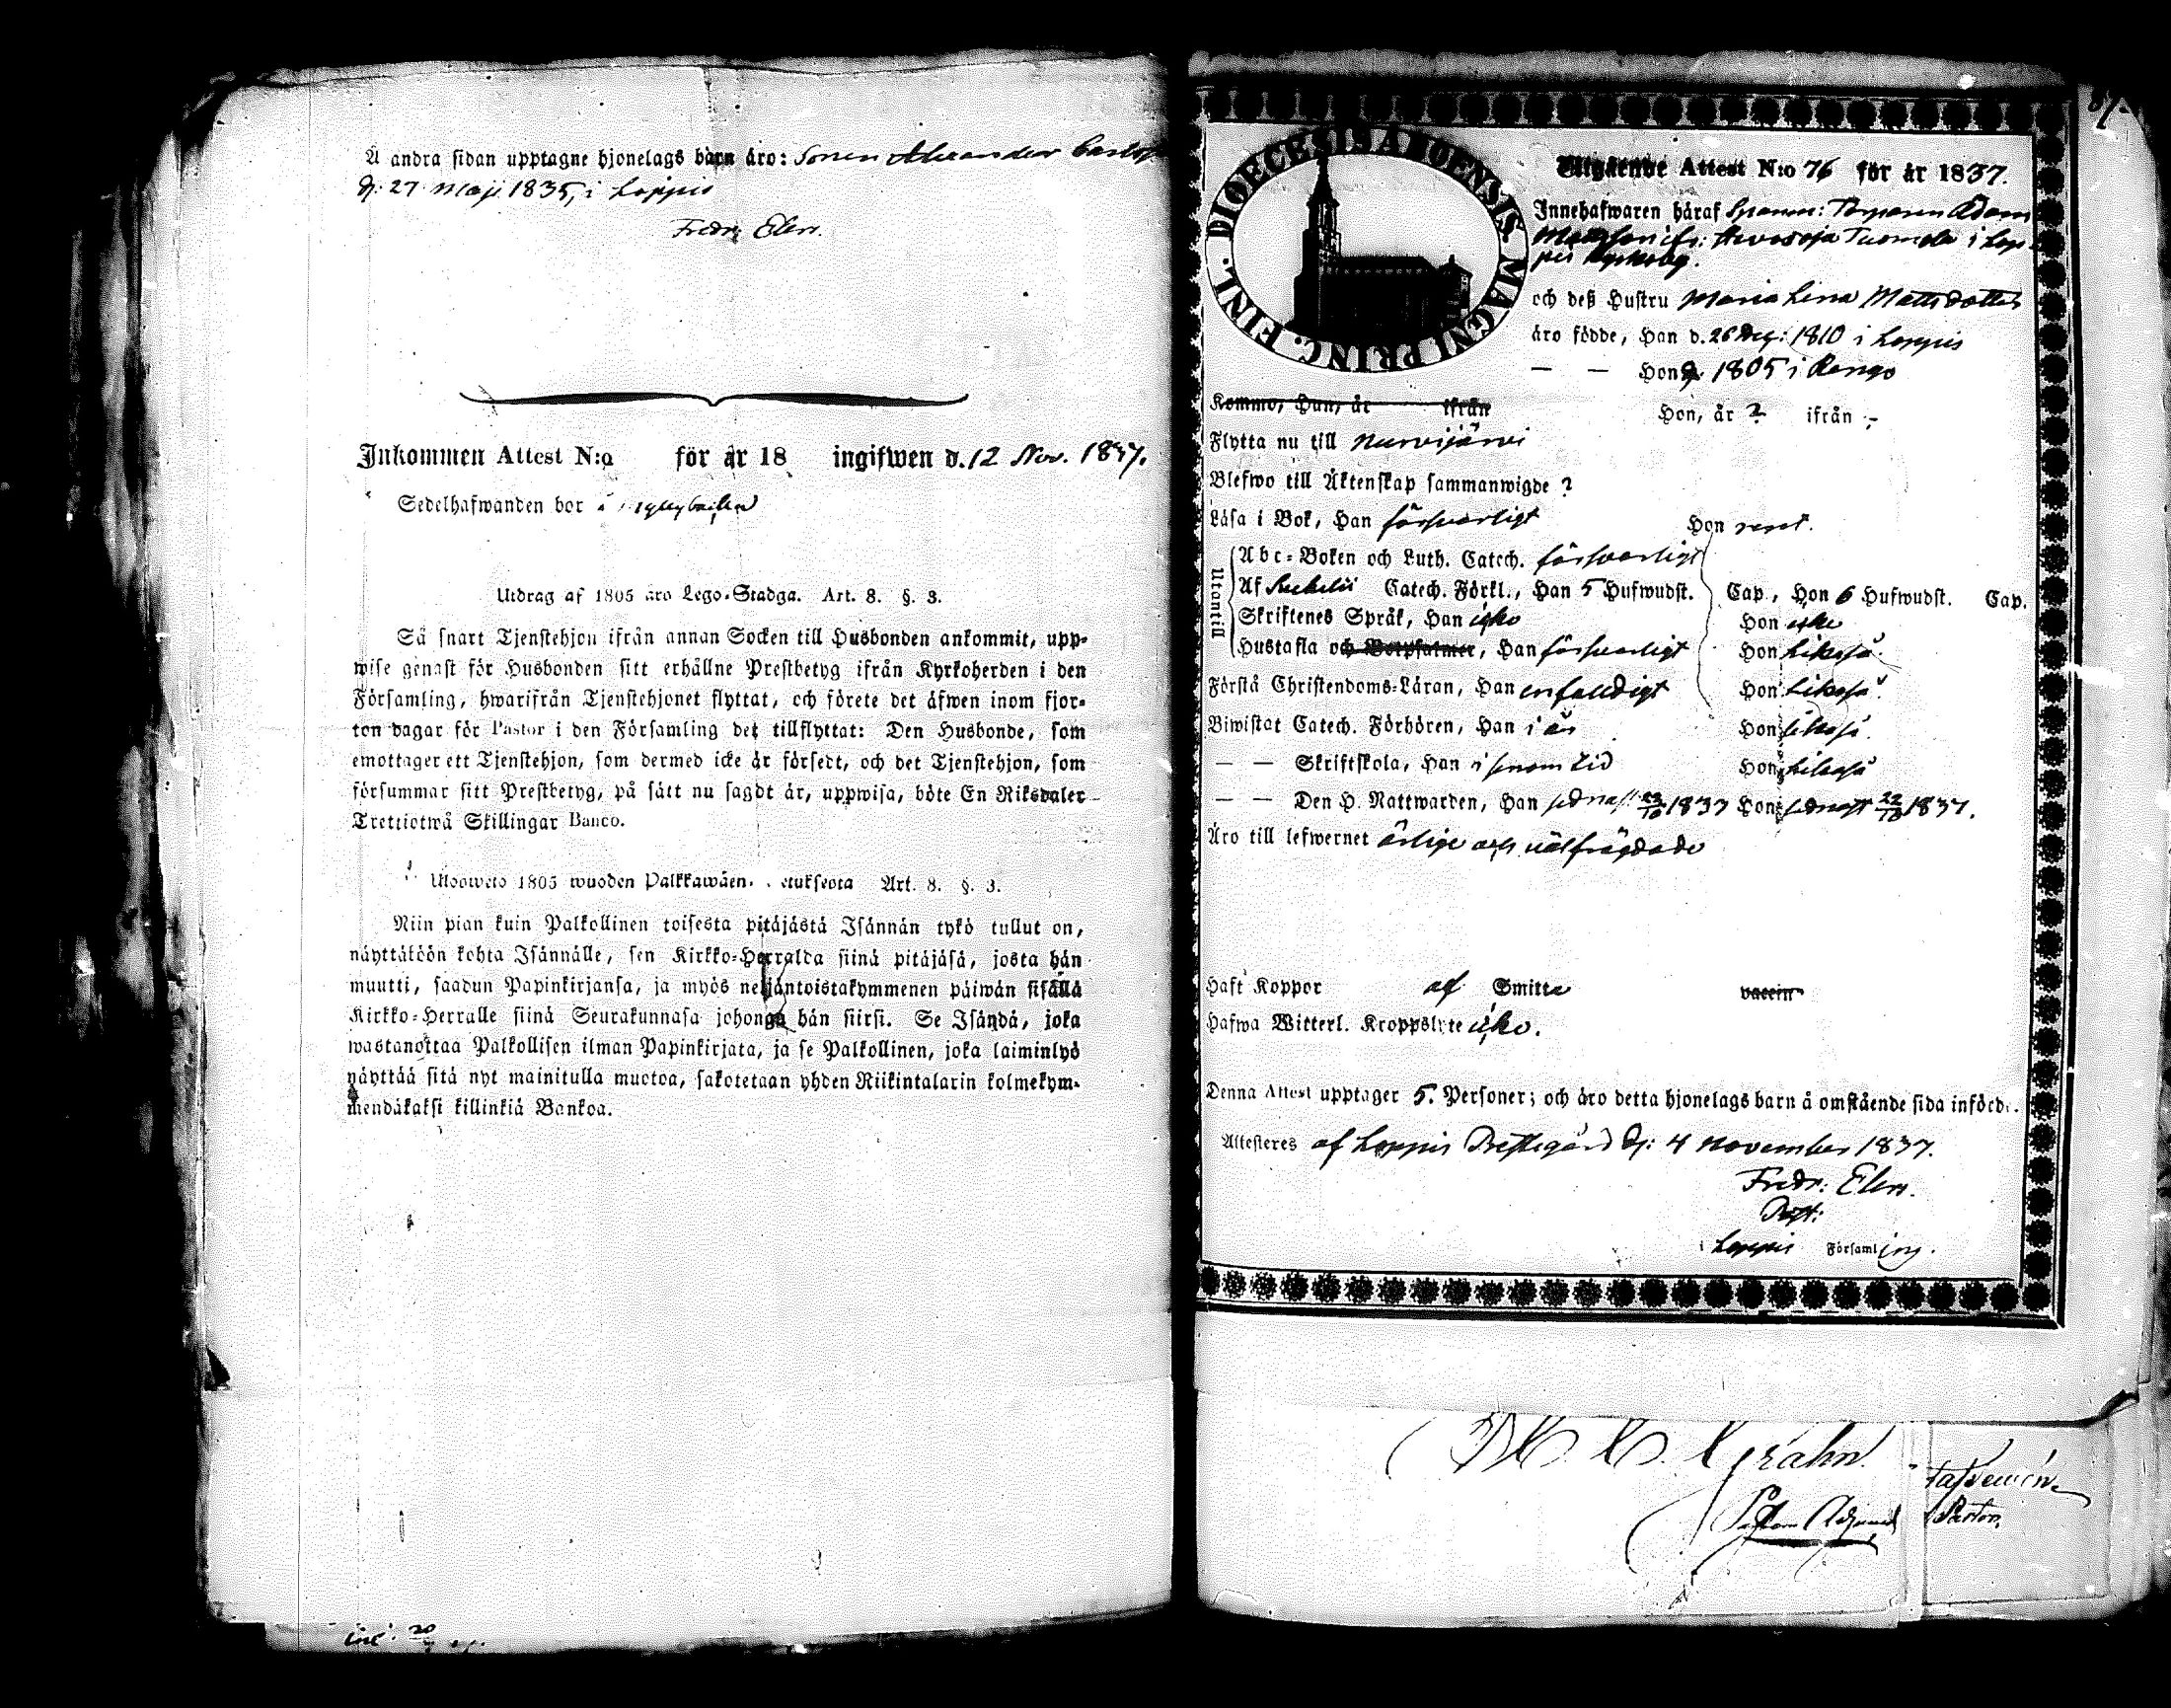 Å andra sidan upptagne hjonelags barn äro: Sonen Alexander
d. 27 Maji 1835, i Loppis
Fredr: Elers.
Inkommen Attest N:o för år 18 ingifwen d. 12 Nov. 1837.
Sedelhafwanden bor
Utdrag af 1805 års Lego-Stadga. Art. 8. §. 3.
Så snart Tjenstehjon ifrån annan Socken till Husbonden ankommit, upp-
wise genast för Husbonden sitt erhållne Prestbetyg ifrån Kyrkoherden i den
Församling, hwarifrån Tjenstehjonet flyttat, och förete det äfwen inom fjor-
ton dagar för Pastor i den Församling det tillflyttat: Den Husbonde, som
emottager ett Tjenstehjon, som dermed icke är försedt, och det Tjenstehjon, som
försummar sitt Prestbetyg, på sätt nu sagdt är, uppwisa, böte En Riksdaler
Trettiotwå Skillingar Banco.
Ulosweto 1805 wuoden Palkkawäen etuksesta Art. 8. §. 3.
Niin pian kuin Palkollinen toisesta pitäjästä Isännän tykö tullut on,
näyttäköön kohta Isännälle, sen Kirkko-Herralda siinä pitäjäsä, josta hän
muutti, saadun Papinkirjansa, ja myös neljäntoistakymmenen päiwän sisällä
Kirkko-Herralle siinä Seurakunnasa johonga hän siirsi. Se Isändä, joka
wastanottaa Palkollisen ilman Papinkirjata, ja se Palkollinen, joka laiminlyö
näyttää sitä nyt mainitulla muotoa, sakotetaan yhden Riikintalarin kolmekym-
mendäkaksi killinkiä Bankoa.
DIOECESIS ABOENSIS MAGNI PRINC. FINL.
Utgående Attest N:o 76 för år 1837.
Innehafwaren häraf Torparen Adam
Mattsson ifr: Arvosoja Tuomola i Lop-
pis Kyrkoby.
och deß Hustru Maria Lena Mattsdotter
äro födde, Han d. 26 Dec: 1810 i Loppis
— — Hon d. 1805 i Rengo
Kommo, Han, år ifrån Hon, år ? ifrån -
Flytta nu till Nurmijärvi
Blefwo till Äktenskap sammanwigde ?
Läsa i Bok, Han försvarligt Hon rent.
Utantill
Abc-Boken och Luth. Catech. försvarligt
Af Catech. Förkl., Han 5 Hufwudst. Cap., Hon 6 Hufwudst. Cap.
Skriftenes Språk, Han icke Hon icke
Hustafla och Botpsalmer, Han försvarligt Hon Likaså
Förstå Christendoms-Läran, Han enfaldigt Hon Likaså
Biwistat Catech. Förhören, Han i år Hon likaså
— — Skriftskola, Han i sinom tid Hon likaså
— — Den H. Nattwarden, Han sednast 22/10 1837 Hon sednast 22/10 1837.
Äro till lefwernet ärlige och välfrägdade
Haft Koppor af Smitta vaccin
Hafwa Witterl. Kroppslyte icke.
Denna Attest upptager 5. Personer; och äro detta hjonelags barn å omstående sida införde.
Attesteres af Loppis Prestegård d: 4 November 1837.
Fredr: Elers.
Loppis Församling.
Grahn
Pastor.